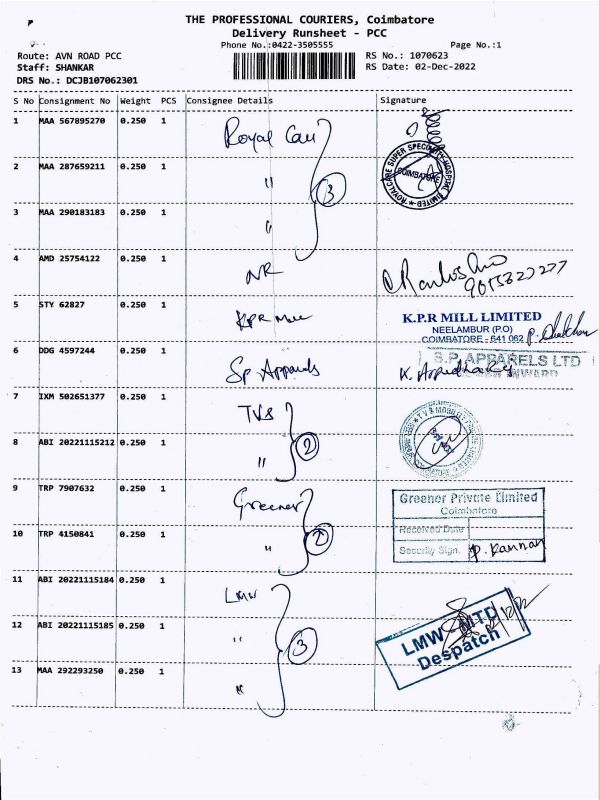 THE PROFESSIONAL COURIERS, Coimbatore
Delivery Runsheet - PCC
Phone No.:0422-3505555
Page No.:1
Route: AVN ROAD PCC
RS No.: 1070623
Staff: SHANKAR
RS Date: 02-Dec-2022
DRS No.: DCJB107062301
S No Consignment No Weight PCS Consignee Details Signature
1 MAA 567895270 0.250 1 Royal Care
2 MAA 287659211 0.250 1 "
3
ROYAL CARE SUPER SPECIALITY HOSPITAL LIMITED
COIMBATORE
3 MAA 290183183 0.250 1 "
4 AMD 25754122 0.250 1 NR
5 STY 62827 0.250 1 KPR Mill
K.P.R MILL LIMITED
NEELAMBUR (P.O)
COIMBATORE - 641 062
6 DDG 4597244 0.250 1 Sp Apparels
S.P. APPARELS LTD
INWARD
7 IXM 502651377 0.250 1 TVS
8 ABI 20221115212 0.250 1 "
2
9 TRP 7907632 0.250 1 Greener
Greener Private Limited
Coimbatore
Received Date
Security Sign. P. Kannan
10 TRP 4150841 0.250 1 "
11 ABI 20221115184 0.250 1 LMW
12 ABI 20221115185 0.250 1 "
3
LMW LTD
Despatch
13 MAA 292293250 0.250 1 "